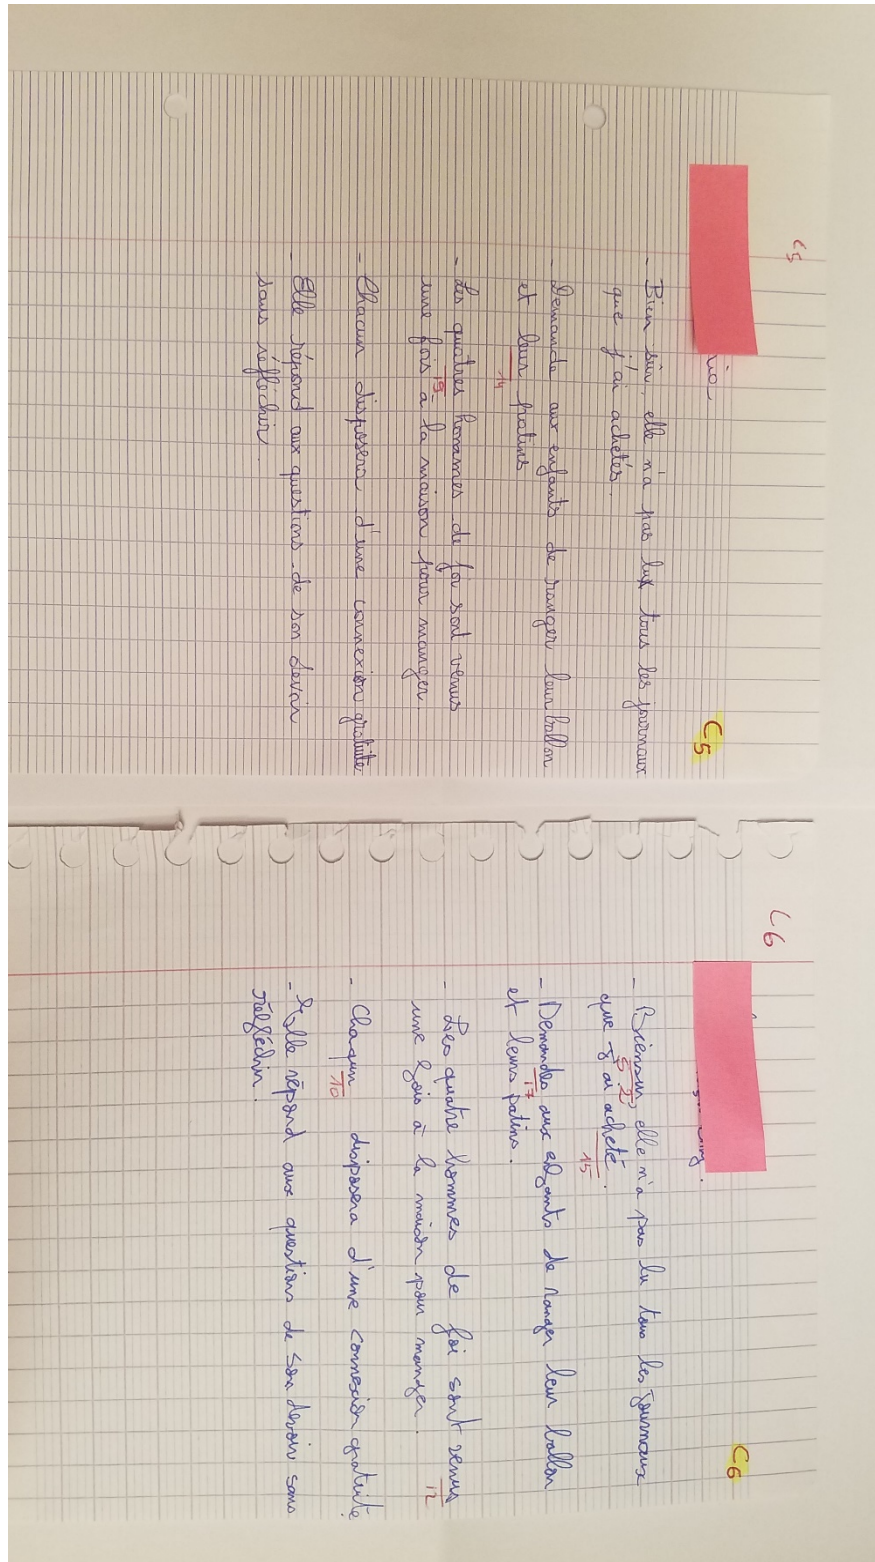 C5
C5
- Bien sûr, elle n'a pas lu tous les journaux
que j'ai achetés.
- Demande aux enfants de ranger leur ballon
et leur patins
14
- Les quatres hommes de foi sont venus
19
une fois a la maison pour manger.
- Chacun disposera d'une connexion gratuite
- Elle répond aux questions de son devoir
sans réfléchir.
C6
C6
- Biensur, elle n'a pas lu tous les journaux
5 2
que j'ai acheté.
15
- Demandes aux enfants de ranger leur ballon
17
et leurs patins.
- Les quatre hommes de foi sont venus
une fois à la maison pour manger.
12
- Chaqun disposera d'une connexion gratuite.
10
- Elle répond aux questions de son devoir sans
réfléchir.